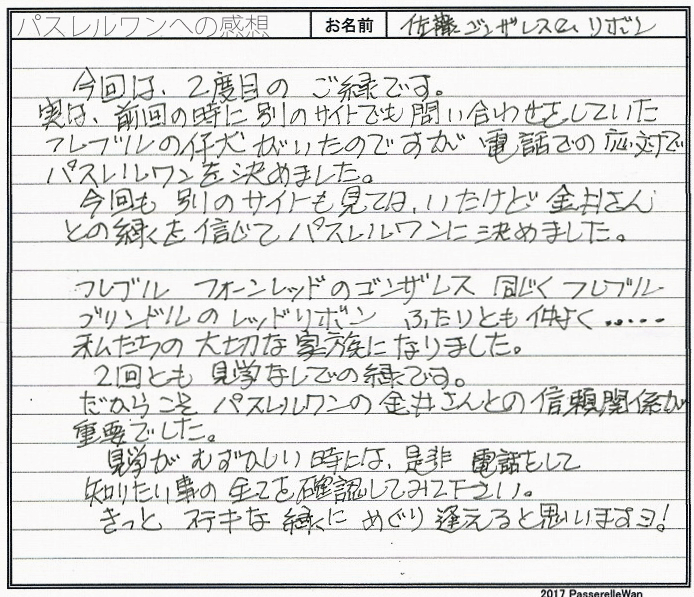 パスレルワンへの感想 お名前 佐藤ゴンザレス&リボン
今回は、2度目の ご縁です。
実は、前回の時に 別のサイトでも 問い合わせをしていた
フレブルの仔犬がいたのですが 電話での 応対で
パスレルワンを決めました。
今回も 別のサイトも見ては、いたけど 金井さん
との縁を信じて パスレルワンに決めました。
フレブル フォーンレッドのゴンザレス 同じくフレブル
ブリンドルのレッドリボン ふたりとも 仲よく・・・・・
私たちの 大切な家族になりました。
2回とも 見学なしでの縁です。
だからこそ パスレルワンの金井さんとの信頼関係が
重要でした。
見学が むずかしい時には、是非 電話をして
知りたい事の全てを確認してみて下さい。
きっと ステキな 縁に めぐり逢えると思いますヨ!
2017 PasserelleWan